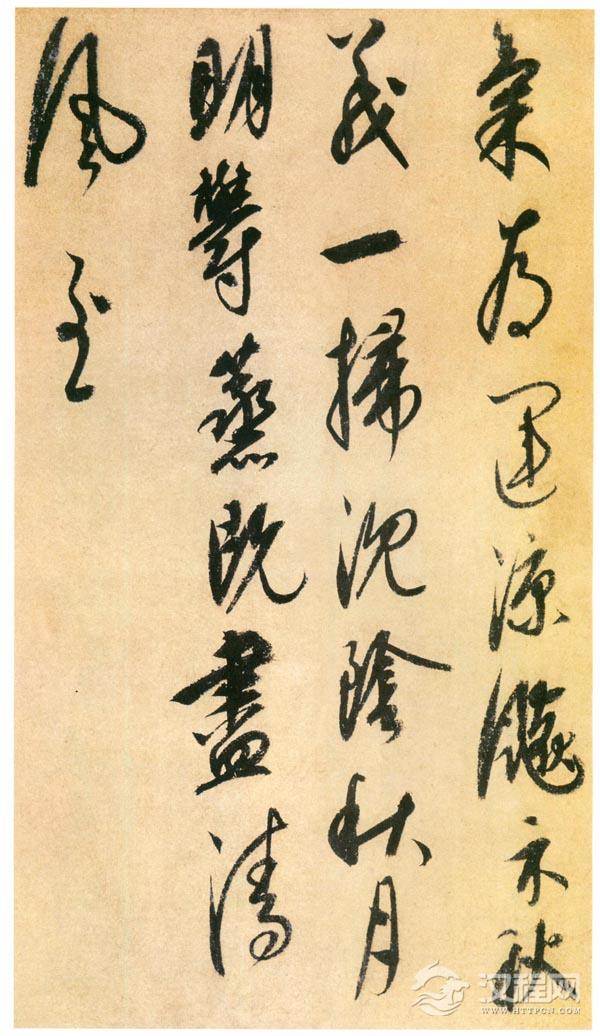 氣為運涼飈示秋
義一掃沉陰秋月
明欝蒸既盡清
風至
汉程网
WWW.HTTPCN.COM